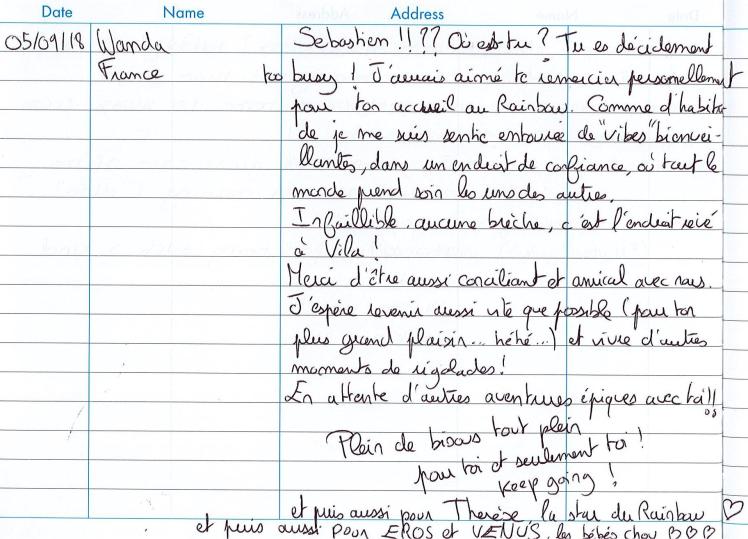 Date Name Address
05/09/18 Wanda Sébastien !!?? Où es-tu ? Tu es décidément
France too busy ! J'aurais aimé te remercier personellement
pour ton accueil au Rainbow. Comme d'habitu-
de je me suis sentie entourée de "vibes" bienvei-
llantes, dans un endroit de confiance, où tout le
monde prend soin les uns des autres.
Infaillible, aucune brèche, c'est l'endroit rêvé
à Vila !
Merci d'être aussi conciliant et amical avec nous.
J'espère revenir aussi vite que possible (pour ton
plus grand plaisir... héhé...) et vivre d'autres
moments de rigolades !
En attente d'autres aventures épiques avec toi !!
Plein de bisous tout plein
pour toi et seulement toi !
Keep going !
et puis aussi pour Thérèse la star du Rainbow ♡
et puis aussi pour EROS et VENUS, les bébés chou ♡♡♡